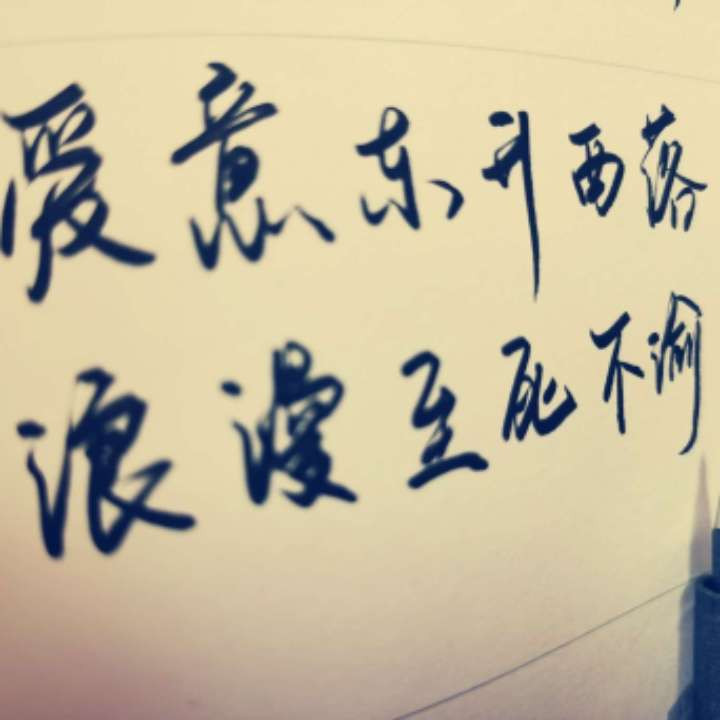 爱意东升西落
浪漫至死不渝